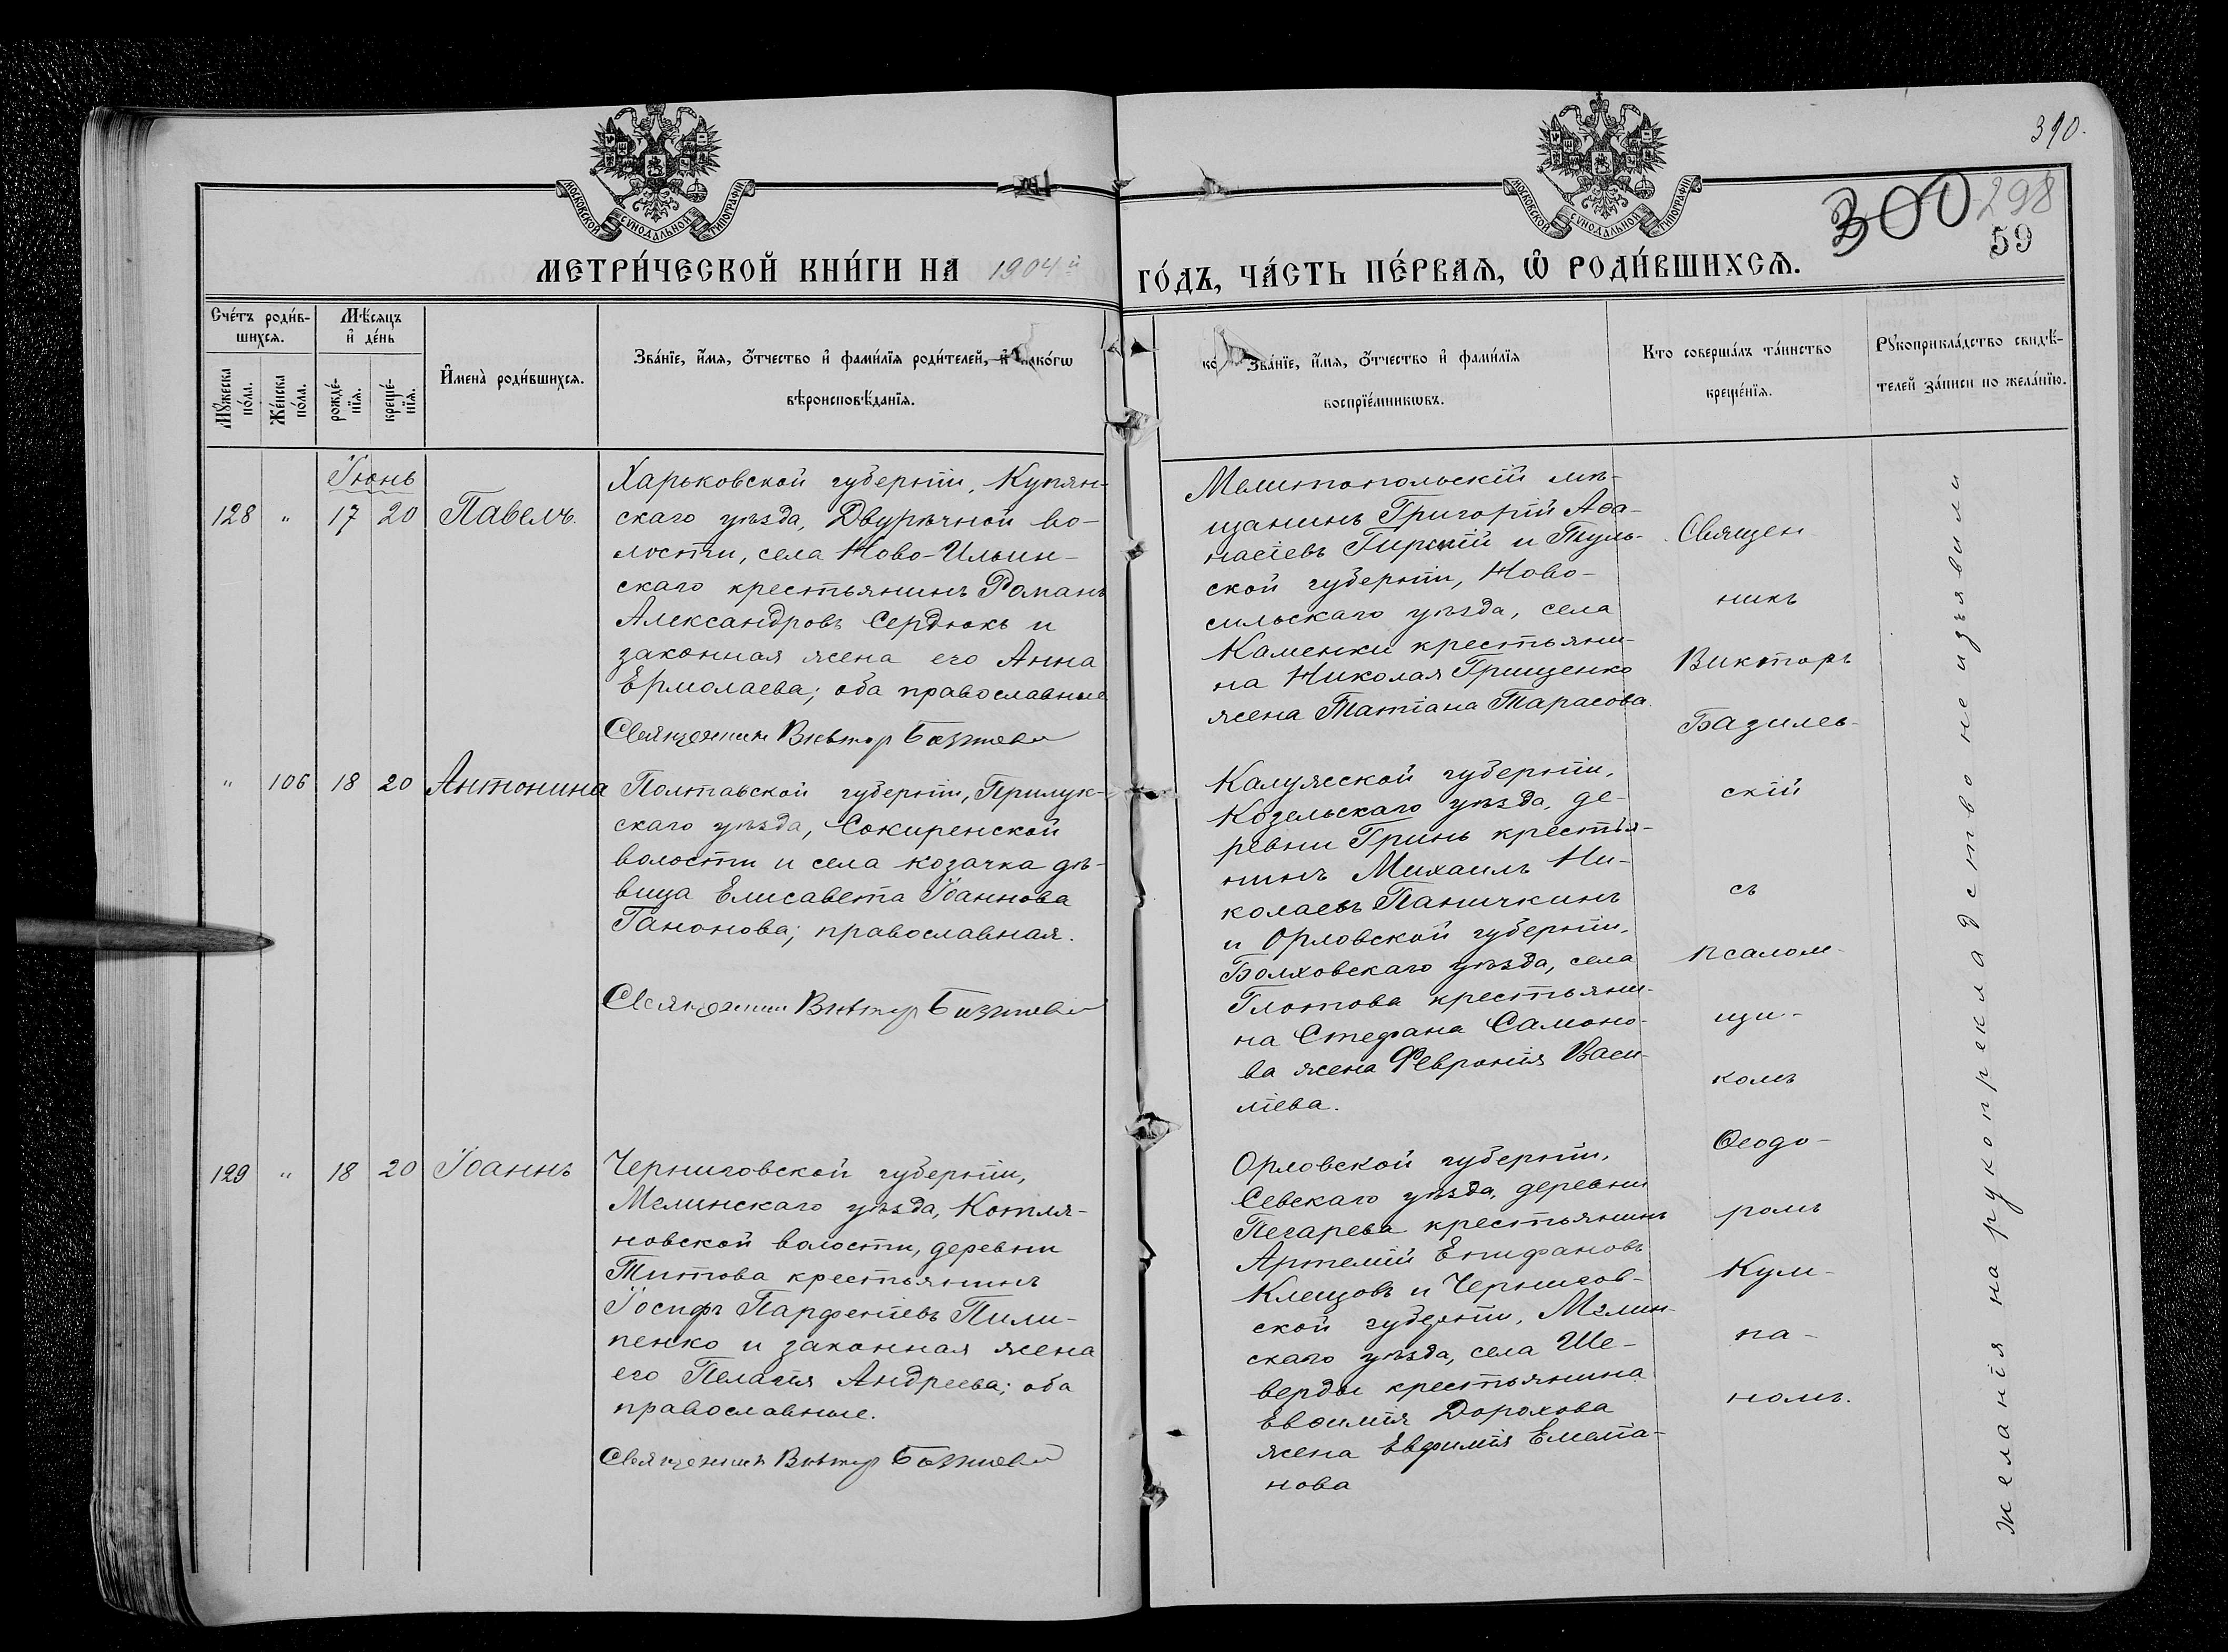 390.
300 298
59
МОСКОВСКОЙ СѴНОДАЛЬНОЙ ТИПОГРАФІИ
МОСКОВСКОЙ СѴНОДАЛЬНОЙ ТИПОГРАФІИ
МЕТРИ́ЧЕСКОЙ КНИ́ГИ НА 1904й ГО́ДЪ, ЧА́СТЬ ПЕ́РВАѦ, Ѡ҆ РОДИ́ВШИХСѦ.
Сче́тъ роди́в-
шихсѧ.
Мꙋ́жеска
по́ла.
Же́нска
по́ла.
Мѣ́сѧцъ
и҆ де́нь
рожде́-
нїѧ.
креще́-
нїѧ.
И҆мена̀ роди́вшихсѧ.
Зва́нїе, и҆́мѧ, ѻ҆́тчество и҆ фами́лїѧ роди́телей, и҆ како́гѡ
вѣроисповѣ́данїѧ.
Зва́нїе, и҆́мѧ, ѻ҆́тчество и҆ фами́лїѧ
воспрїе́мникѡвъ.
Кто соверша́лъ та́инство
креще́нїѧ.
Рꙋкоприкла́дство свидѣ́-
телей за́писи по жела́нїю.
Іюнь
128 " 17 20 Павелъ.
Харьковской губерніи, Купян-
скаго уѣзда, Двурѣчной во-
лости, села Ново-Ильин-
скаго крестьянинъ Романъ
Александровъ Сердюкъ и
законная жена его Анна
Ермолаева; оба православные
Священникъ Викторъ Базилев
Мелитопольскій мѣ-
щанинъ Григорій Аѳа-
насіевъ Гирскій и Туль-
ской губерніи, Ново-
сильскаго уѣзда, села
Каменки крестьяни-
на Николая Грищенко
жена Татіана Тарасова.
" 106 18 20 Антонина
Полтавской губерніи, Прилук-
скаго уѣзда, Сокиренской
волости и села козачка дѣ-
вица Елисавета Іоаннова
Ганонова; православная.
Священникъ Викторъ Базилев
Калужской губерніи,
Козельскаго уѣзда, де-
ревни Гринь крестья-
нинъ Михаилъ Ни-
колаевъ Паничкинъ
и Орловской губерніи,
Болховскаго уѣзда, села
Глотова крестьяни-
на Стефана Самоно-
ва жена Февронія Васи-
ліева.
129 " 18 20 Іоаннъ
Черниговской губерніи,
Мглинскаго уѣзда, Котля-
новской волости, деревни
Титова крестьянинъ
Іосифъ Парфеніевъ Пили-
пенко и законная жена
его Пелагія Андреева; оба
православные.
Священникъ Викторъ Базилев
Орловской губерніи,
Севскаго уѣзда, деревни
Пегарева крестьянинъ
Артемій Епифановъ
Клещовъ и Чернигов-
ской губерніи, Мглин-
скаго уѣзда, села Ше-
верды крестьянина
Евѳимія Дорохова
жена Евфимія Емелiа-
нова
Священ-
никъ
Викторъ
Базилев-
скій
съ
псалом-
щи-
комъ
Ѳеодо-
ромъ
Кул-
па-
номъ.
желанія на рукоприкладство не изъявили